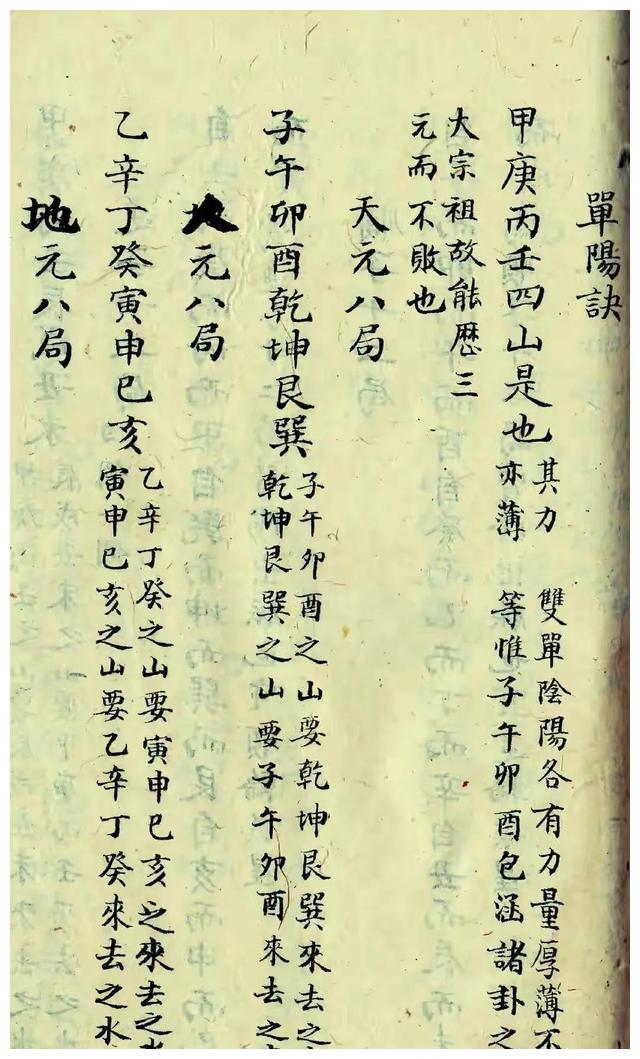 單陽訣
甲庚丙壬四山是也
其力
亦薄
雙單陰陽各有力量厚薄不
等惟子午卯酉包涵諸卦之
大宗祖故能厯三
元而不敗也
天元八局
子午卯酉乾坤艮巽
子午卯酉之山要乾坤艮巽來去之
乾坤艮巽之山要子午卯酉來去之
人元八局
乙辛丁癸寅申巳亥
乙辛丁癸之山要寅申巳亥之來去之
寅申巳亥之山要乙辛丁癸來去之水
地元八局